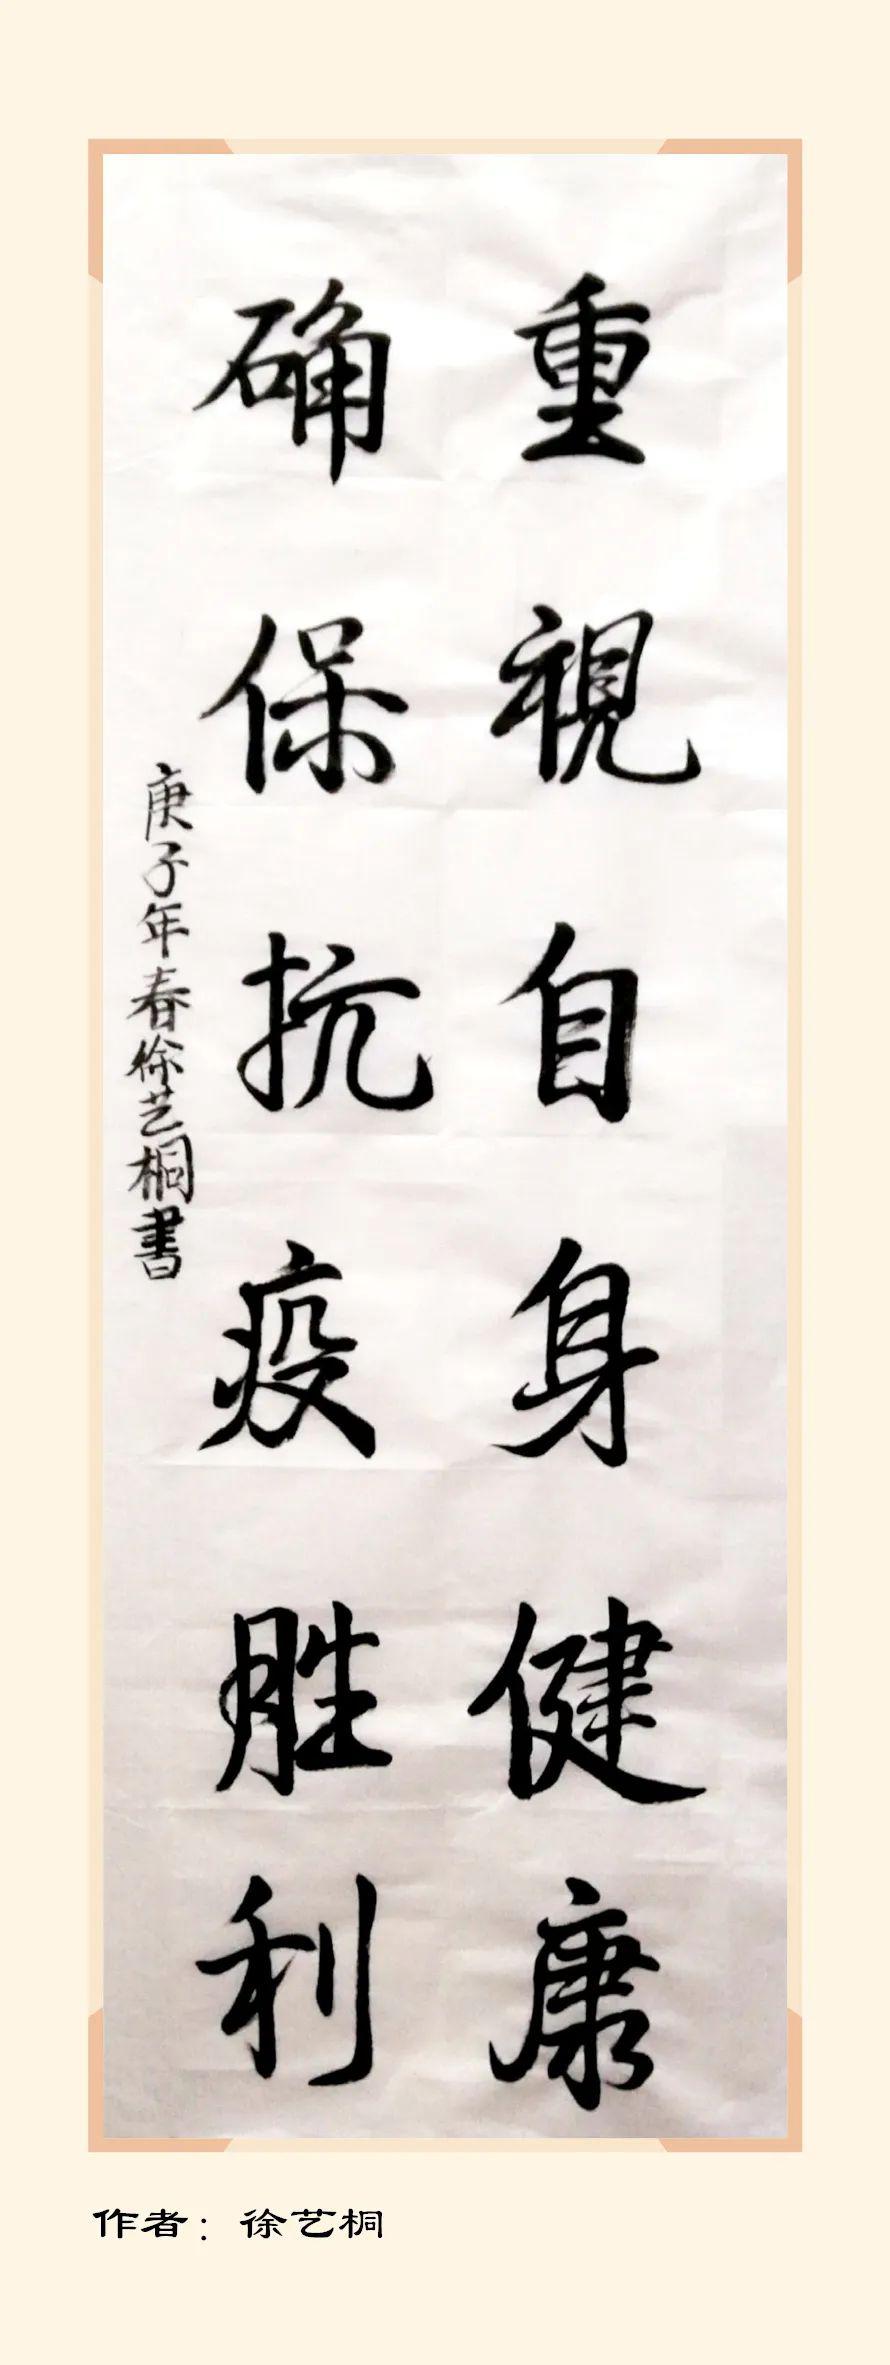 重視自身健康
确保抗疫胜利
庚子年春徐艺桐書
作者：徐艺桐